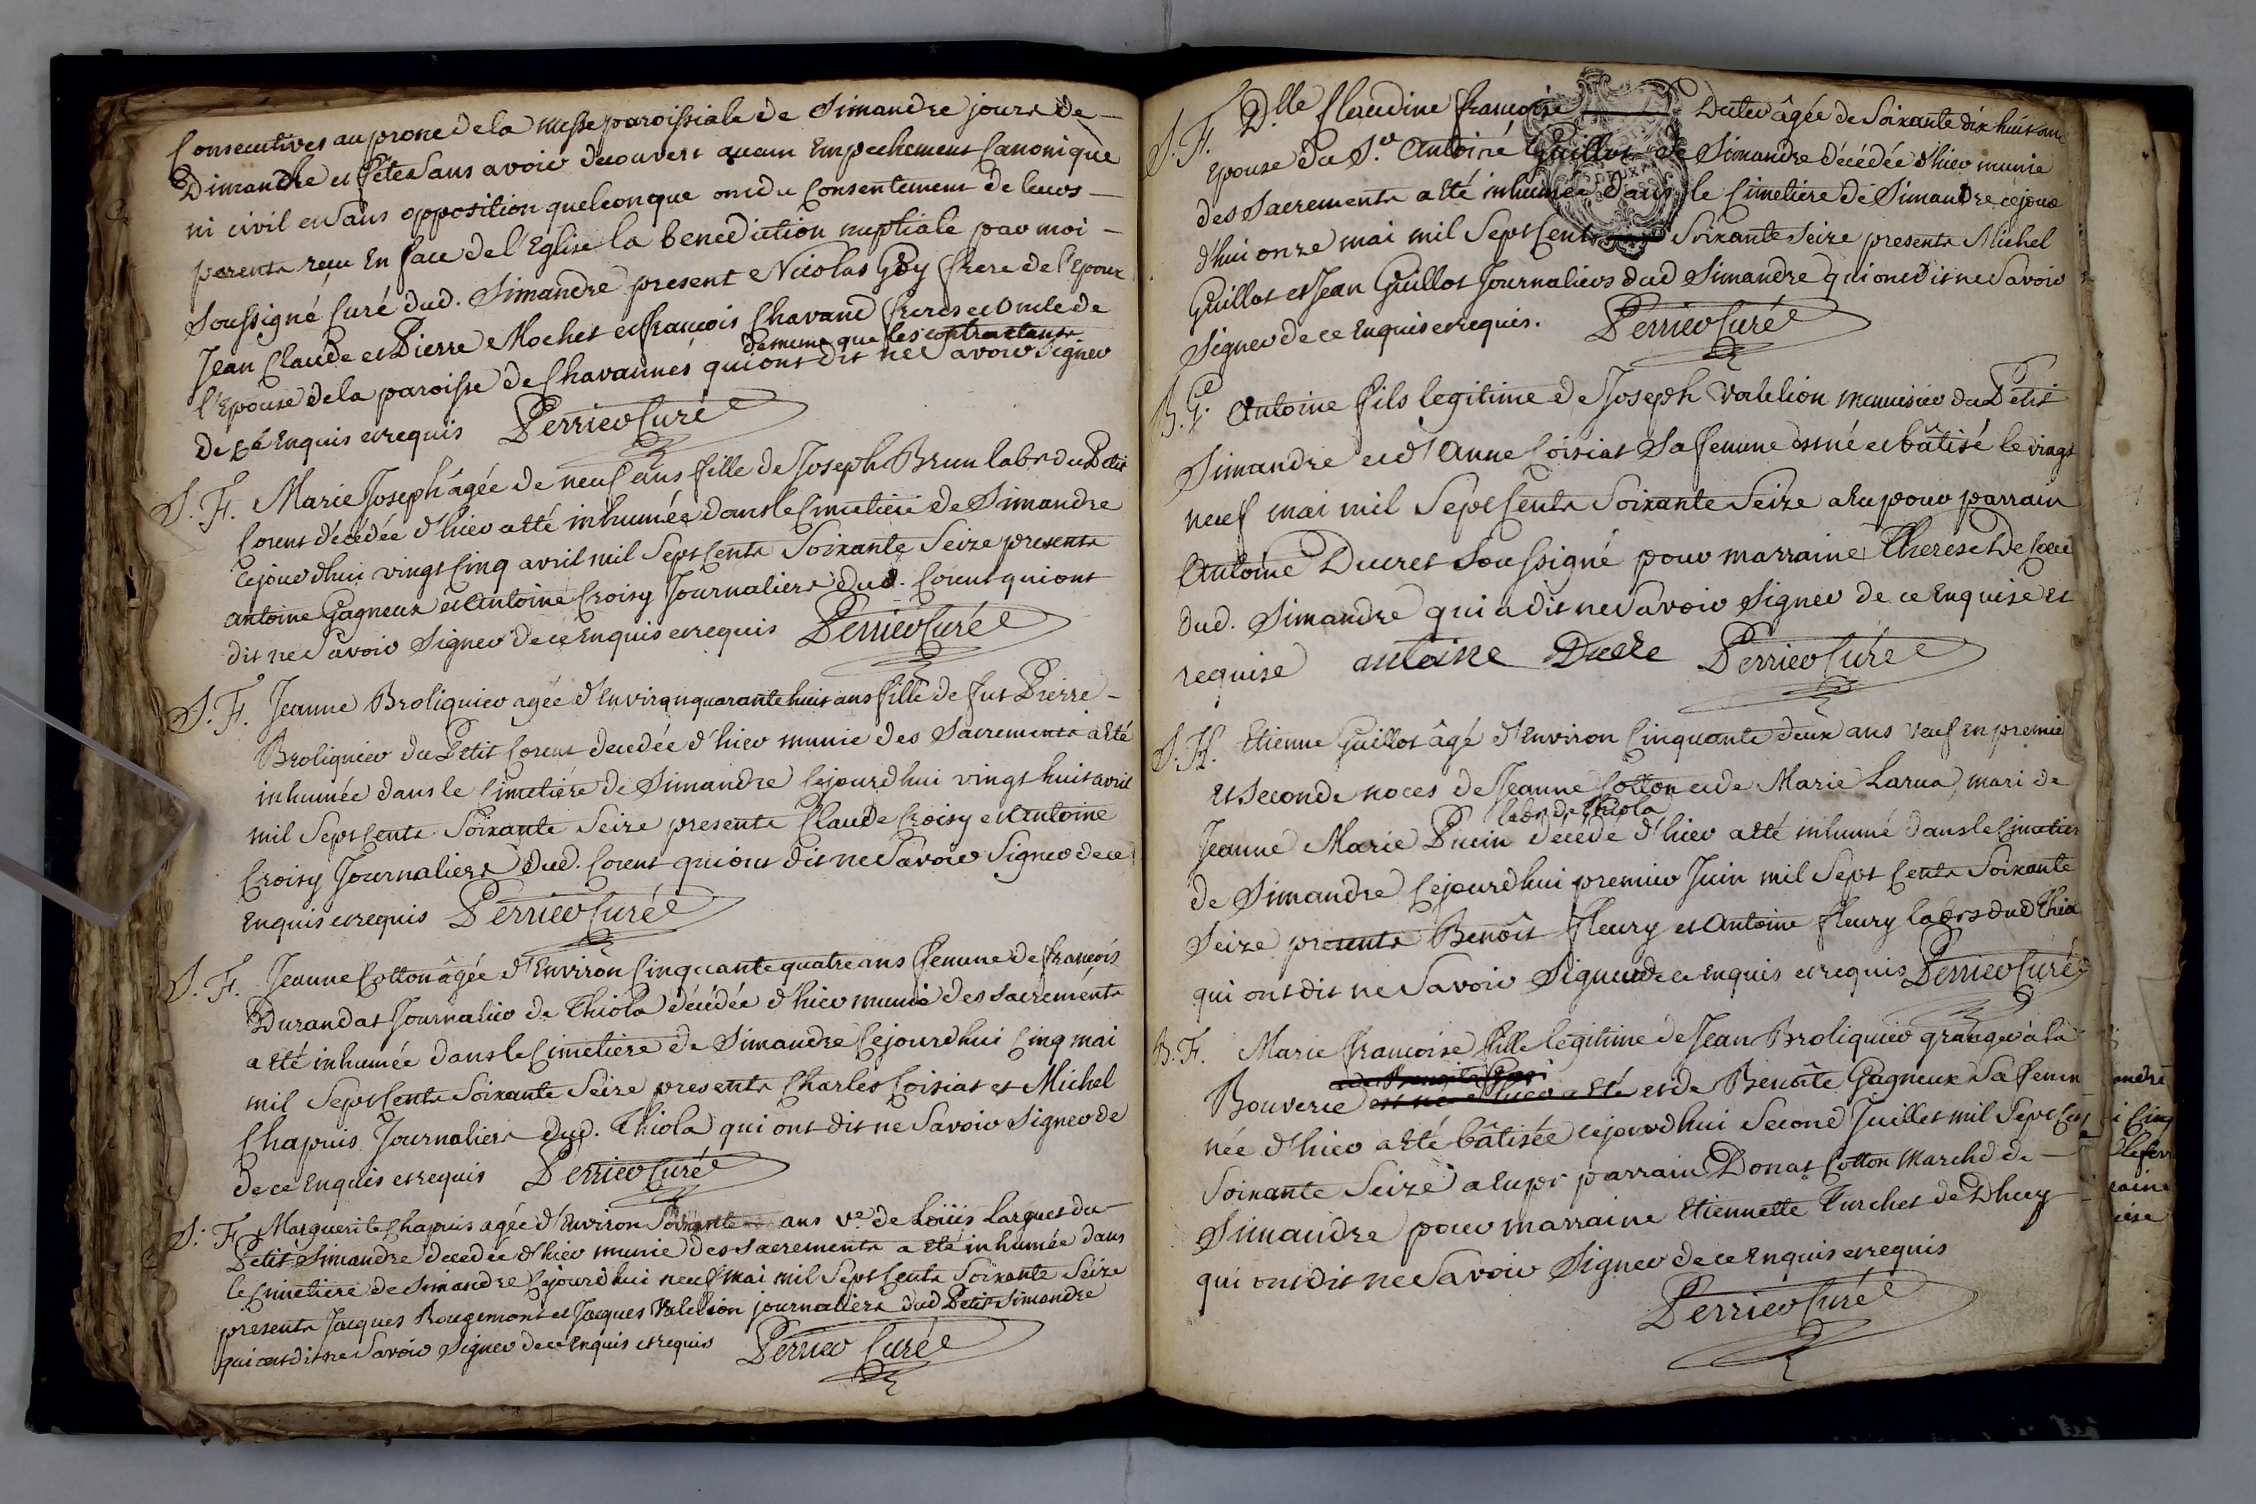 Consecutives au prone de la messe paroissiale de Simandre jours de
Dimanche et fêtes sans avoir decouvert aucun Empechement Canonique
ni civil et sans opposition quelconque ont du Consentement de leurs
parents reçu En face de l'Eglise la benediction nuptiale par moi
Soussigné Curé dud. Simandre present Nicolas Goy frere de l'Epoux
Jean Claude et Pierre Mochet et françois Chavand freres et oncle de
de meme que les contractants
l'Epouse de la paroisse de Chavannes qui ont dit ne Savoir Signer
de ce Enquis et requis Perrier Curé
S. F. Marie Joseph âgée de neuf ans fille de Joseph Brun labr du Petit
Corent décédée d'hier a été inhumée dans le Cimetiere de Simandre
cejourdhui vingt Cinq avril mil Sept Cents Soixante Seize presents
antoine Gagneux et Antoine Croisy Journaliers dud. Corent qui ont
dit ne Savoir Signer de ce Enquis et requis Perrier Curé
S. F. Jeanne Broliquier agée d'Environ quarante huit ans fille de fut Pierre
Broliquier du Petit Corent decedée d'hier munie des Sacrements a Eté
inhumée dans le Cimetiére de Simandre Cejourdhui vingt huit avril
mil Sept Cents Soixante Seize presents Claude Croisy et Antoine
Croisy Journaliers dud. Corent qui ont dit ne Savoir Signer de ce
Enquis et requis Perrier Curé
S. F. Jeanne Cotton âgée d'Environ Cinquante quatre ans femme de françois
Durandat Journalier de Thiola décédée d'hier munie des sacrements
a Eté inhumée dans le Cimetiere de Simandre Cejourdhui Cinq mai
mil Sept Cents Soixante Seize presents Charles Coisiat et Michel
Chapuis Journaliers dud. Thiola qui ont dit ne Savoir Signer de
de ce Enquis et requis Perrier Curé
S. F. Marguerite Chapuis agée d'Environ Soixante ans ve. de Loüis Larquet du
Petit Simandre decedée d'hier munie des sacrements a Eté inhumée dans
le Cimetiere de Simandre Cejourdhui neuf mai mil Sept Cents Soixante Seize
presents Jacques Rougemont et Jacques Valelion journaliers dud Petit Simandre
qui ont dit ne Savoir Signer de ce Enquis et requis Perrier Curé
S. F. Dlle Claudine françoise Duter âgée de Soixante dix huit ans
Epouse du Sr. Antoine Guillot de Simandre décédée d'hier munie
des Sacrements a Eté inhumée dans le Cimetiere de Simandre cejour
d'hui onze mai mil Sept Cents Soixante Seize presents Michel
Guillot et Jean Guillot Journaliers dud Simandre qui ont dit ne Savoir
Signer de ce Enquis et requis. Perrier Curé
B. G. Antoine fils legitime de Joseph Valelion menuisier du Petit
Simandre et d'Anne Coisiat Sa femme est né et bâtisé le vingt
neuf mai mil Sept Cents Soixante Seize a Eu pour parrain
Antoine Ducret Soussigné pour marraine Therese
dud. Simandre qui a dit ne Savoir Signer de ce Enquise et
requise antoine Perrier Curé
S. H. Etienne Guillot âgé d'Environ Cinquante deux ans veuf En premie
Et Seconde noces de Jeanne Cotton et de Marie Larua, mari de
labr de Thiola
Jeanne Marie Pucin décédé d'hier a Eté inhumé dans le Cimetier
de Simandre Cejourdhui premier Juin mil Sept Cents Soixante
Seize presents Benôit fleury et Antoine fleury labrs dud Thiola
qui ont dit ne Savoir Signer de ce enquis et requis Perrier Curé
B. F. Marie francoise fille legitime de Jean Broliquier granger à la
Bouverie et de Benoîte Gagneux Sa femm
née d'hier a Eté bâtisée cejourdhui Second Juillet mil Sept Cens
Soixante Seize a Eu pr parrain Donat Cotton Marchd de
Simandre pour marraine Etiennette Turchet de Dhuy
qui ont dit ne Savoir Signer de ce Enquis et requis
Perrier Curé